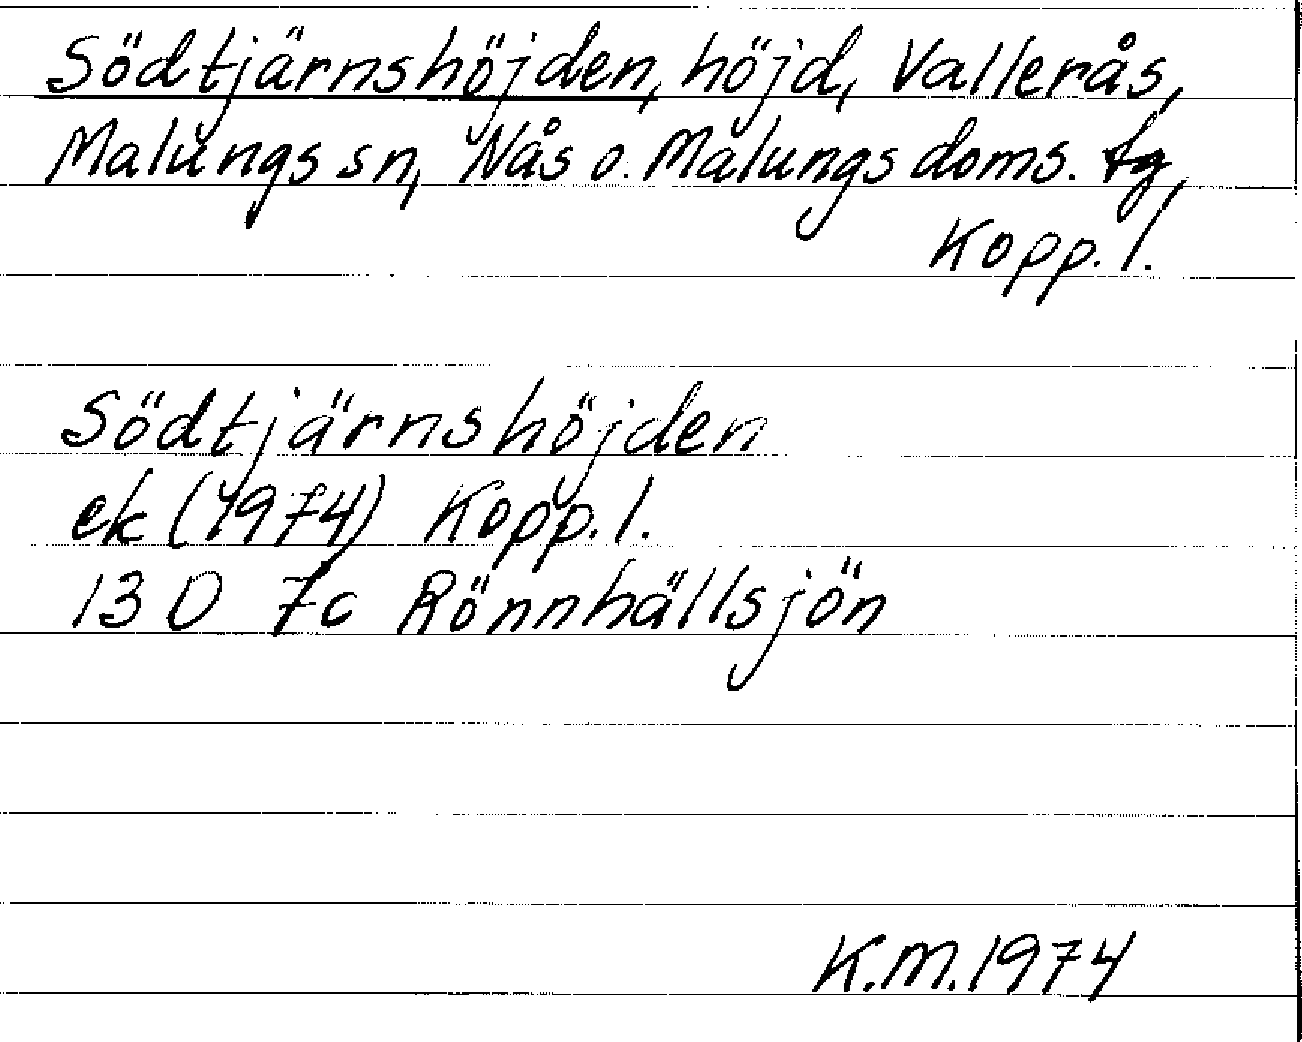 Södtjärnshöjden, höjd, Vallerås,
Malungs sn, Nås o. Malungs doms. tg,
Kopp. l.
Södtjärnshöjden
ek (1974) Kopp. l.
13 D 7c Rönnhällsjön
K.M. 1974